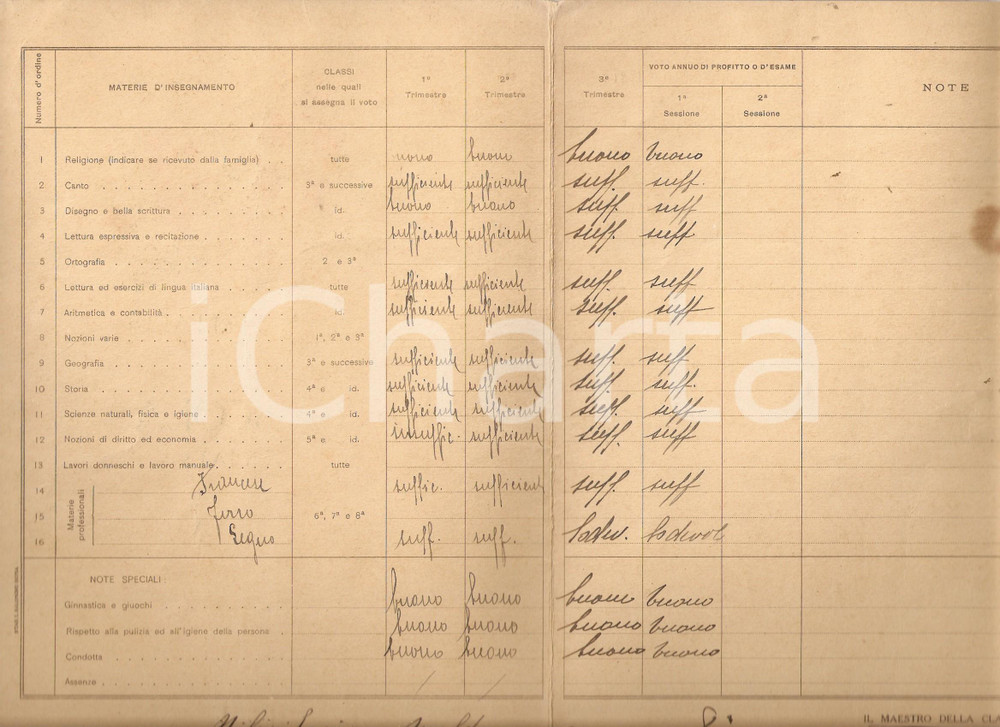 Numero d'ordine MATERIE D'INSEGNAMENTO CLASSI nelle quali si assegna il voto 1º Trimestre 2º Trimestre 3º Trimestre VOTO ANNUO DI PROFITTO O D'ESAME 1ª Sessione 2ª Sessione NOTE
1 Religione (indicare se ricevuto dalla famiglia) . . tutte buono buono buono
2 Canto 3ª e successive sufficiente sufficiente suff. suff.
3 Disegno e bella scrittura id. buono buono suff. suff
4 Lettura espressiva e recitazione id. sufficiente sufficiente suff. suff
5 Ortografia 2 e 3ª
6 Lettura ed esercizi di lingua italiana tutte sufficiente sufficiente suff. suff
7 Aritmetica e contabilità id. sufficiente sufficiente suff. suff
8 Nozioni varie 1ª, 2ª e 3ª
9 Geografia 3ª e successive sufficiente sufficiente suff. suff
10 Storia 4ª e id. sufficiente sufficiente suff. suff.
11 Scienze naturali, fisica e igiene 4ª e id. sufficiente sufficiente suff. suff
12 Nozioni di diritto ed economia 5ª e id. insuffic. sufficiente suff. suff
13 Lavori donneschi e lavoro manuale tutte
14 Francese suffic. sufficient suff. suff
Materie professionali
15 Ferro 6ª, 7ª e 8ª
16 Legno suff. suff. lodev. lodevol
NOTE SPECIALI
Ginnastica e giuochi buono buono buono buono
Rispetto alla pulizia ed all'igiene della persona buono buono buono buono
Condotta buono buono buono buono
Assenze / /
IL MAESTRO DELLA CLA
iCharta